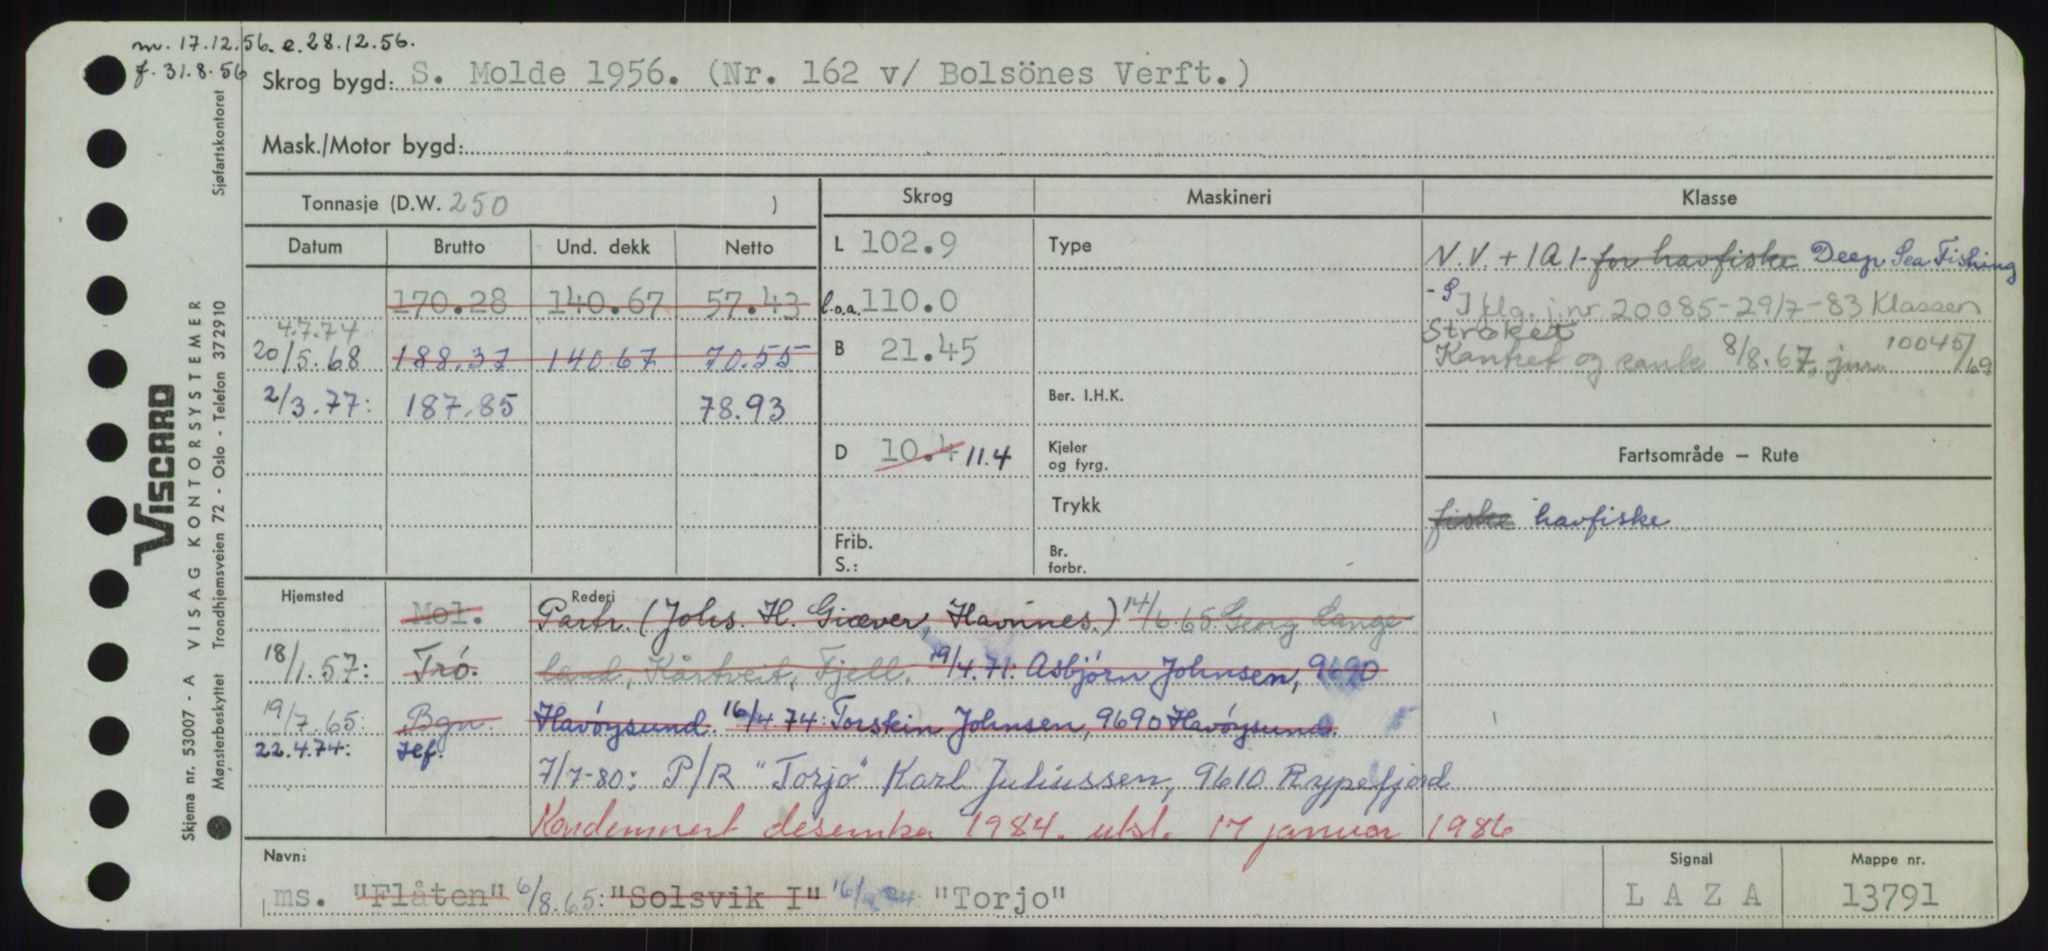 m. 17.12.56. e. 28.12.56.
f. 31.8.56
Skrog bygd: S. Molde 1956. (Nr. 162 v/ Bolsönes Verft.)
Mask./Motor bygd:
Tonnasje (D.W. 250 )
Skrog
Maskineri
Klasse
Datum Brutto Und. dekk Netto
170.28 140.67 57.43
4.7.74
20/5.68 188.37 140.67 70.55
2/3.77: 187.85 78.93
L 102.9
l.o.a. 110.0
B 21.45
D 10.4 11.4
Frib.
S.:
Type
Ber. I.H.K.
Kjeler
og fyrg.
Trykk
Br.
forbr.
N.V. + 1A1- for havfiske Deep Sea Fishing
-S
I flg. j.nr 20085-29/7-83 Klassen
Strøket
Kantret og sank 8/8.67, jnr. 10045/69
Fartsområde – Rute
fiske havfiske
Hjemsted Rederi
Mol. Partr. (Johs. H. Giæver, Havnnes.) 14/6.65 Georg Lange
18/1.57: Trö. land, Kårtveit, Fjell. 19/4.71: Asbjørn Johnsen, 9690
19/7.65: Bgn. Havöysund. 16/4 74: Torstein Johnsen, 9690 Havöysund.
22.4.74: Hef.
7/7-80: P/R "Torjo" Karl Juliussen, 9610 Rypefjord
Kondemnert desember 1984. utsl. 17 januar 1986
Navn: Signal Mappe nr.
ms. "Flåten" 6/8.65: "Solsvik I" 16/4 74 "Torjo" LAZA 13791
VISCARD
Skjema nr. 53007 - A VISAG KONTORSYSTEMER
Mønsterbeskyttet Trondhjemsveien 72 - Oslo - Telefon 372910 Sjøfartskontoret